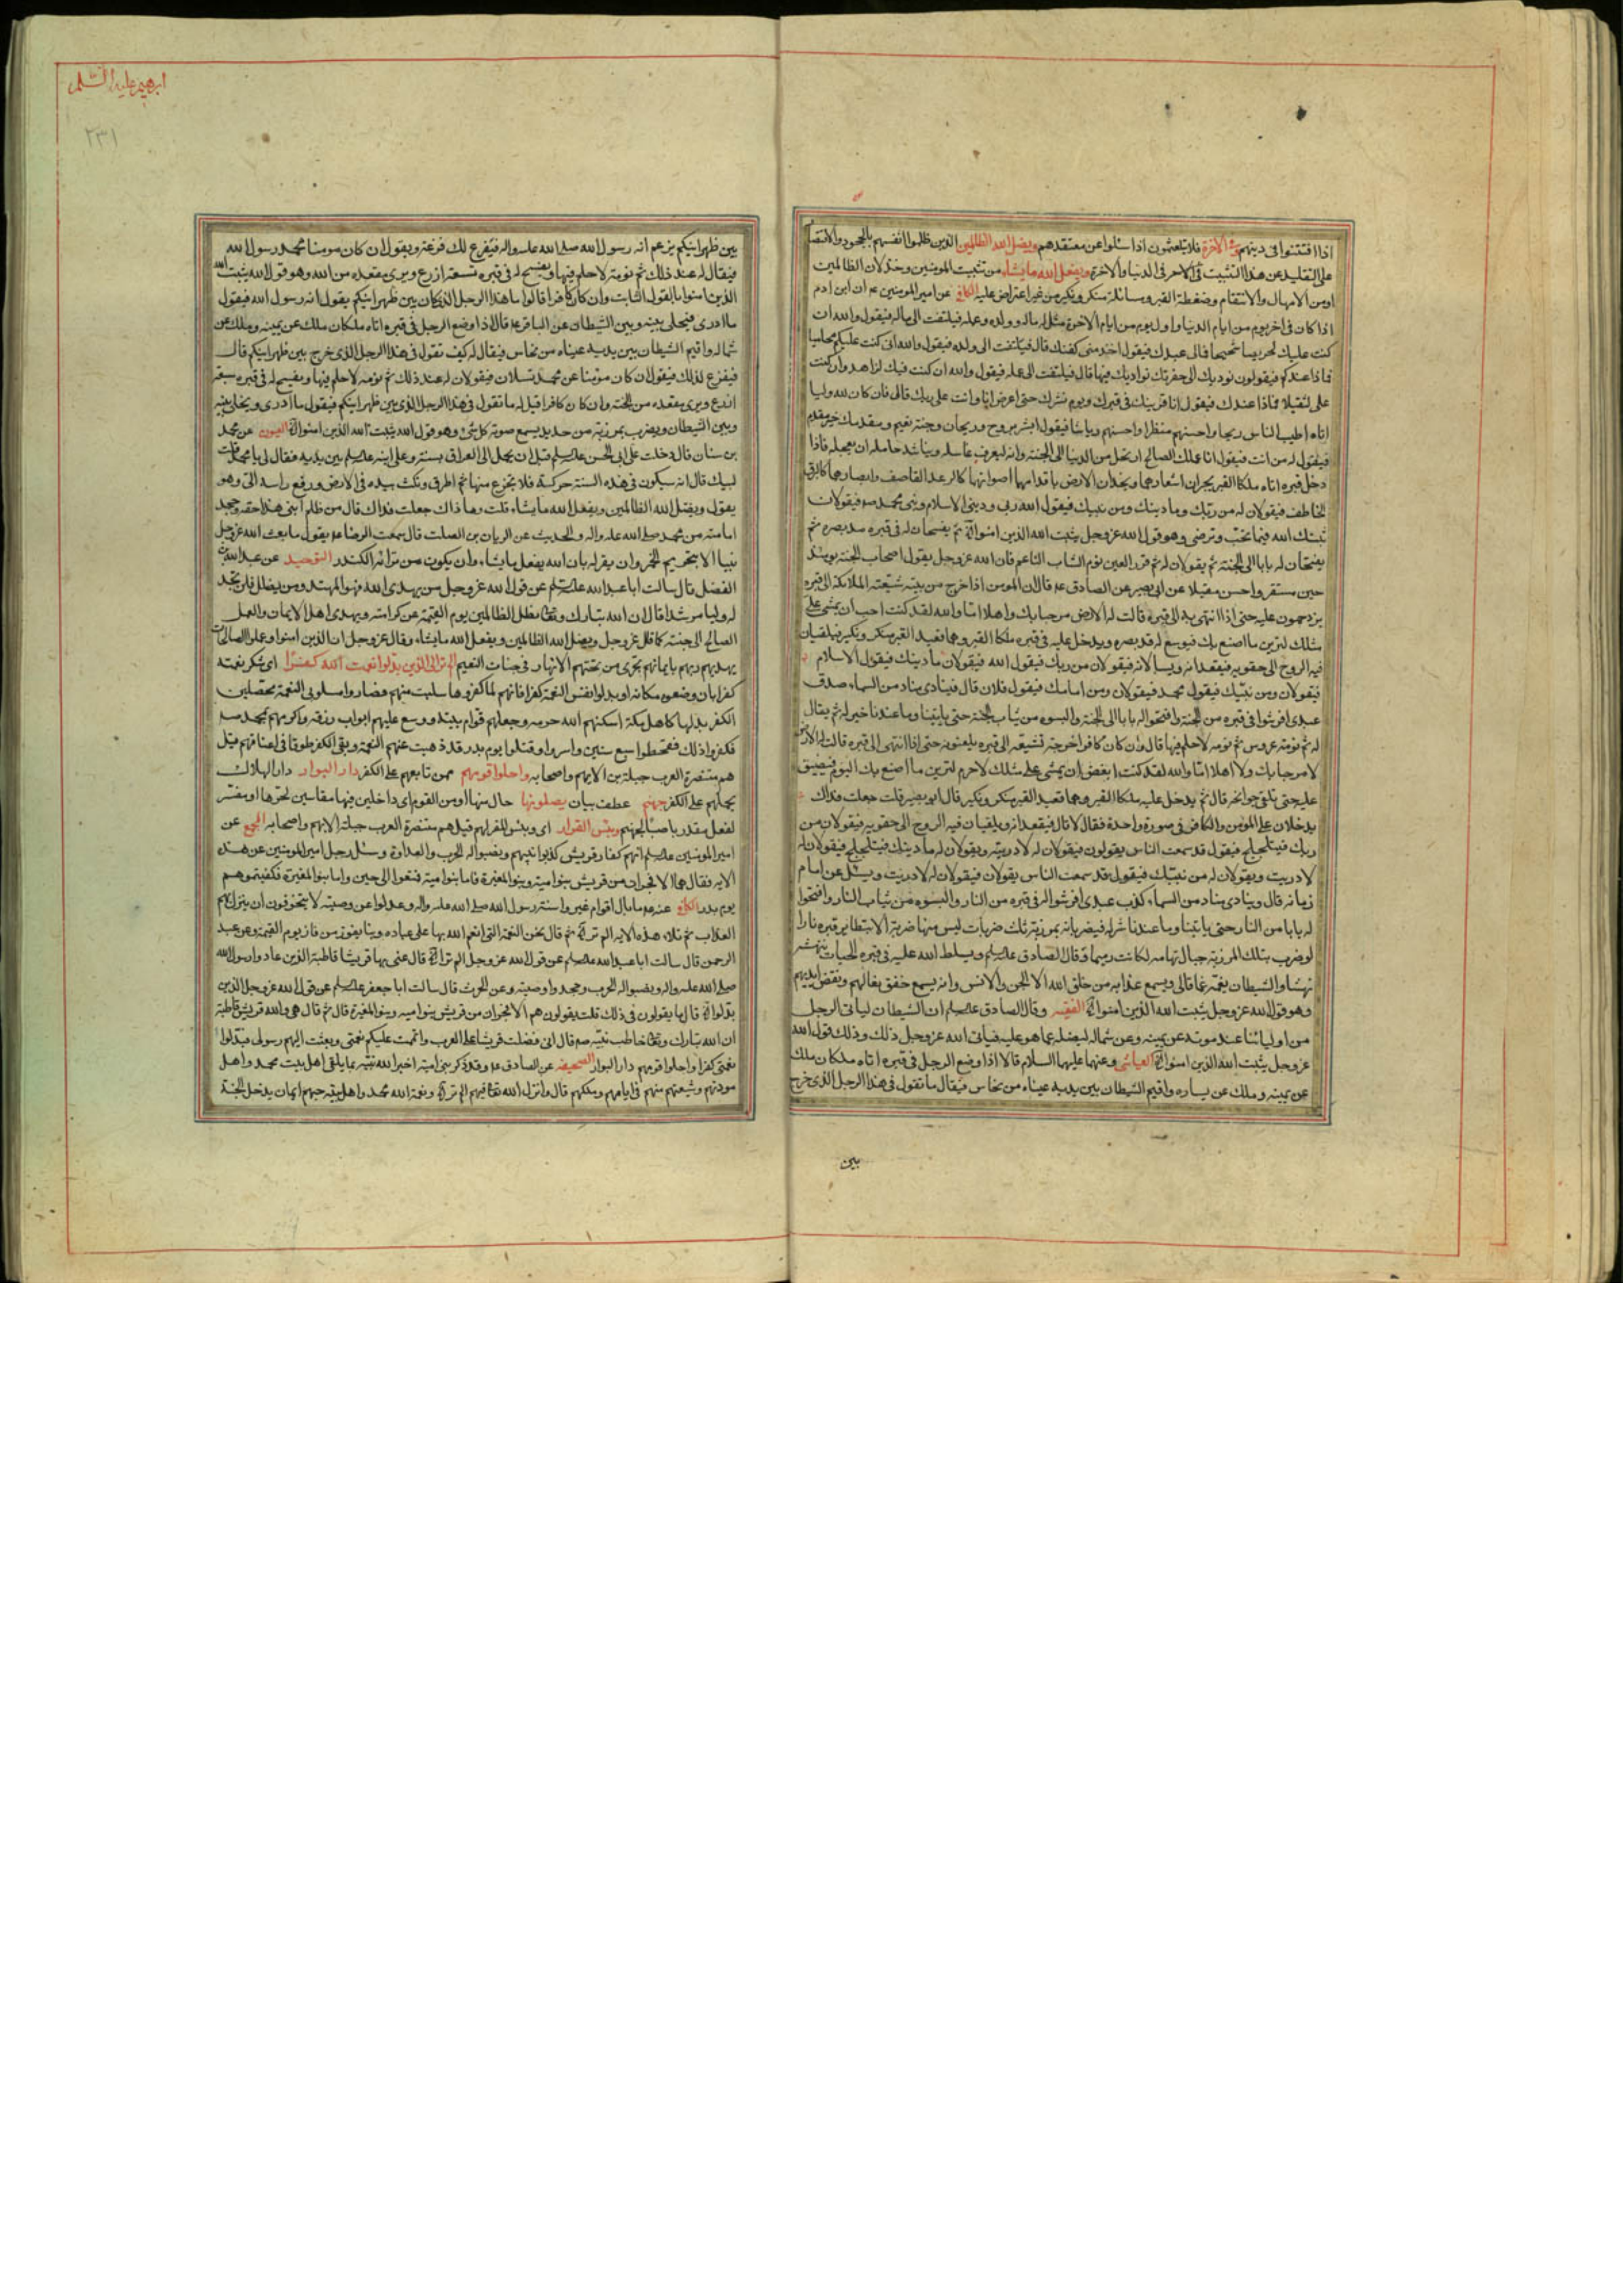 اذا افتتنوا فى دينهم وفى الاخرة فلا يتلعثمون اذا سئلوا عن معتقدهم ويضل الله الظالمين الذين ظلموا انفسهم بالجحود والاقتصار
على التقليد عن هذا التثبيت فى الاخر فى الدنيا والاخرة ويفعل الله ما يشاء من تثبيت المومنين وخذلان الظالمين
اومن الامهال والانتقام وضغطة القبر ومسائلة منكر ونكير من غير اعتراض عليه الكافى عن امير المومنين عم ان ابن ادم
اذا كان فى اخر يوم من ايام الدنيا واول يوم من ايام الاخرة مثل له ماله وولده وعمله فيلتفت الى ماله فيقول والله ان
كنت عليك لحريصا شحيحا فمالى عندك فيقول اخذ منى كفنك قال فيلتفت الى ولده فيقول والله انى كنت عليكم محاميا
فماذا عندكم فيقولون نوديك الى حفرتك نواريك فيها قال فيلتفت الى عمله فيقول والله ان كنت فيك لزاهدا وان كنت
على لثقيلا فماذا عندك فيقول انا قرينك فى قبرك ويوم نشرك حتى اعرض انا وانت على ربك قال فان كان لله وليا
اتاه اطيب الناس ريحا واحسنهم منظرا واحسنهم رياشا فيقول ابشر بروح وريحان وجنة نعيم ومقدمك خير مقدم
فيقول له من انت فيقول انا عملك الصالح ارتحل من الدنيا الى الجنة وانه ليعرف غاسله ويناشد حامله ان يعجله فاذا
دخل قبره اتاه ملكا القبر يجران اشعارهما ويخدان الارض باقدامهما اصواتهما كالرعد القاصف وابصارهما كالبرق
الخاطف فيقولان له من ربك وما دينك ومن نبيك فيقول الله ربى ودينى الاسلام ونبى محمد صم فيقولان
ثبتك الله فيما تحب وترضى وهو قول الله عز وجل يثبت الله الذين امنوا الاية ثم يفسحان له فى قبره مد بصره ثم
يفتحان له بابا الى الجنة ثم يقولان له نم قرير العين نوم الشاب الناعم فان الله عز وجل يقول اصحاب الجنة يومئذ
خير مستقرا واحسن مقيلا عن ابى بصير عن الصادق عم قال ان المومن اذا خرج من بيته شيعته الملائكة الى قبره
يزدحمون عليه حتى اذا انتهى به الى قبره قالت له الارض مرحبا بك واهلا اما والله لقد كنت احب ان يمشى على
مثلك لترين ما اصنع بك فيوسع له مد بصره ويدخل عليه فى قبره ملكا القبر وهما قعيدا القبر منكر ونكير فيلقيان
فيه الروح الى حقويه فيقعدانه ويسالانه فيقولان من ربك فيقول الله فيقولان ما دينك فيقول الاسلام
فيقولان ومن نبيك فيقول محمد فيقولان ومن امامك فيقول فلان قال فينادى مناد من السماء صدق
عبدى افرشوا فى قبره من الجنة وافتحوا له بابا الى الجنة والبسوه من ثياب الجنة حتى ياتينا وما عندنا خير له ثم يقال
له نم نومة عروس نم نومة لا حلم فيها قال وان كان كافرا خرجت تشيعه الى قبره يلعنونه حتى اذا انتهى الى قبره قالت له الارض
لا مرحبا بك ولا اهلا اما والله لقد كنت ابغض ان يمشى على مثلك لا جرم لترين ما اصنع بك اليوم فيضيق
عليه حتى تلتقى جوانحه قال ثم يدخل عليه ملكا القبر وهما قعيدا القبر منكر ونكير قال ابو بصير قلت جعلت فداك
يدخلان على المؤمن والكافر فى صورة واحدة فقال لا قال فيقعدانه ويلقيان فيه الروح الى حقويه فيقولان من
ربك فيتلجلج فيقول قد سمعت الناس يقولون فيقولان له لا دريت ويقولان له ما دينك فيتلجلج فيقولان له
لا دريت ويقولان له من نبيك فيقول قد سمعت الناس يقولون فيقولان له لا دريت ويسئل عن امام
زمانه قال وينادى مناد من السماء كذب عبدى افرشوا له فى قبره من النار والبسوه من ثياب النار وافتحوا
له بابا من النار حتى ياتينا وما عندنا شر له فيضربانه بمرزبة ثلث ضربات ليس منها ضربة الا يتطاير قبره نارا
لو ضرب بتلك المرزبة جبال تهامة لكانت رميما وقال الصادق عليه السلام ويسلط الله عليه فى قبره الحيات تنهشه
نهشا والشيطان يغمه غما قال ويسمع عذابه من خلق الله الا الجن والانس وانه يسمع خفق نعالهم ونقض ايديهم
وهو قول الله عز وجل يثبت الله الذين امنوا الاية الفقيه وقال الصادق عليه السلام ان الشيطان لياتى الرجل
من اوليائنا عند موته عن يمينه وعن شماله ليضله عما هو عليه فيابى الله عز وجل ذلك وذلك قول الله
عز وجل يثبت الله الذين امنوا الاية العياشى وعنهما عليهما السلام قالا اذا وضع الرجل فى قبره اتاه ملكان ملك
عن يمينه وملك عن يساره واقيم الشيطان بين يديه عيناه من نحاس فيقال ما تقول فى هذا الرجل الذى خرج
بين
ابرهيم عليه السلم
٢٣١
بين ظهرانيكم يزعم انه رسول الله صلى الله عليه واله فيفزع لذلك فزعة ويقول ان كان مومنا محمد رسول الله
فيقال له عند ذلك نم نومة لا حلم فيها ويفسح له فى قبره تسعة اذرع ويرى مقعده من الله وهو قول الله يثبت الله
الذين امنوا بالقول الثابت وان كان كافرا قالوا ما هذا الرجل الذى كان بين ظهرانيكم يقول انه رسول الله فيقول
ما ادرى فيخلى بينه وبين الشيطان عن الباقر عم قال اذا وضع الرجل فى قبره اتاه ملكان ملك عن يمينه وملك عن
شماله واقيم الشيطان بين يديه عيناه من نحاس فيقال له كيف تقول فى هذا الرجل الذى خرج بين ظهرانيكم قال
فيفزع لذلك فيقول ان كان مؤمنا عن محمد تسئلان فيقولان له عند ذلك نم نومة لا حلم فيها ويفسح له فى قبره سبعة
اذرع ويرى مقعده من الجنة وان كان كافرا قيل له ما تقول فى هذا الرجل الذى بين ظهرانيكم فيقول ما ادرى ويخلى بينه
وبين الشيطان ويضرب بمرزبة من حديد يسمع صوته كل شئ وهو قول الله يثبت الله الذين امنوا الاية العيون عن محمد
بن سنان قال دخلت على ابى الحسن عليه السلام قبل ان يحمل الى العراق بسنة وعلى ابنه عليه السلام بين يديه فقال لى يا محمد قلت
لبيك قال انه سيكون فى هذه السنة حركة فلا تجزع منها ثم اطرق ونكت بيده فى الارض ورفع راسه الى وهو
يقول ويضل الله الظالمين ويفعل الله ما يشاء قلت وما ذاك جعلت فداك قال من ظلم ابنى هذا حقه وجحد
امامته من محمد صلى الله عليه واله والحديث عن الريان بن الصلت قال سمعت الرضا عم يقول ما بعث الله عز وجل
نبيا الا بتحريم الخمر وان يقر له بان الله يفعل ما يشاء وان يكون من تراثه الكندر التوحيد عن عبد الله بن
الفضل قال سالت ابا عبد الله عليه السلم عن قول الله عز وجل من يهدى الله فهو المهتد ومن يضلل فلن تجد
له وليا مرشدا فقال ان الله تبارك وتعالى يضل الظالمين يوم القيمة عن كرامته ويهدى اهل الايمان والعمل
الصالح الى جنته كما قال عز وجل ويضل الله الظالمين ويفعل الله ما يشاء وقال عز وجل ان الذين امنوا وعملوا الصالحات
يهديهم ربهم بايمانهم تجرى من تحتهم الانهار فى جنات النعيم الم تر الى الذين بدلوا نعمت الله كفرا اى شكر نعمته
كفرا بان وضعوه مكانه او بدلوا نفس النعمة كفرا فانهم لما كفروها سلبت منهم فصاروا مسلوبى النعمة محصلين
الكفر بدلها كاهل مكة اسكنهم الله حرمه وجعلهم قوام بيته ووسع عليهم ابواب رزقه واكرمهم بمحمد صم
فكفروا ذلك فقحطوا سبع سنين واسروا وقتلوا يوم بدر قد ذهبت عنهم النعمة وبقى الكفر طوقا فى اعناقهم قيل
هم متنصرة العرب جبلة بن الايهم واصحابه واحلوا قومهم ممن تابعهم على الكفر دار البوار دار الهلاك
بحملهم على الكفر جهنم عطف بيان يصلونها حال منها او من القوم اى داخلين فيها مقاسين لحرها او مفسر
لفعل مقدر ناصب لجهنم وبئس القرار اى وبئس المقر لهم قيل هم متنصرة العرب جبلة الايهم واصحابه المجمع عن
امير المومنين عليه السلم انهم كفار قريش كذبوا نبيهم ونصبوا له الحرب والعداوة وسئل رجل امير المومنين عن هذه
الاية فقال هما الافجران من قريش بنو امية وبنو المغيرة فاما بنو امية فمتعوا الى حين واما بنو المغيرة فكفيتموهم
يوم بدر الكافى عنه عم ما بال اقوام غيروا سنة رسول الله صلى الله عليه واله وعدلوا عن وصيته لا يتخوفون ان ينزل بهم
العذاب ثم تلا هذه الاية الم تر الاية ثم قال نحن النعمة التى انعم الله بها على عباده وبنا يفوز من فاز يوم القيمة وعن عبد
الرحمن قال سالت ابا عبد الله عليه السلم عن قول الله عز وجل الم تر الاية قال عنى بها قريشا قاطبة الذين عادوا رسول الله
صلى الله عليه واله ونصبوا له الحرب وجحدوا وصيته وعن الحرث قال سالت ابا جعفر عليه السلم عن قول الله عز وجل الذين
بدلوا الاية قال ما يقولون فى ذلك قلت يقولون هم الافجران من قريش بنو امية وبنو المغيرة قال ثم قال هى والله قريش قاطبة
ان الله تبارك وتعالى خاطب نبيه صم فقال انى فضلت قريشا على العرب واتممت عليكم نعمتى وبعثت اليهم رسولى فبدلوا
نعمتى كفرا واحلوا قومهم دار البوار الصحيفة عن الصادق عم وقد ذكر بنى امية اخبر الله نبيه بما يلقى اهل بيت محمد واهل
مودتهم وشيعتهم منهم فى ايامهم وملكهم قال وانزل الله تعالى فيهم الم تر الاية ونعمة الله محمد واهل بيته حبهم ايمان يدخل الجنة